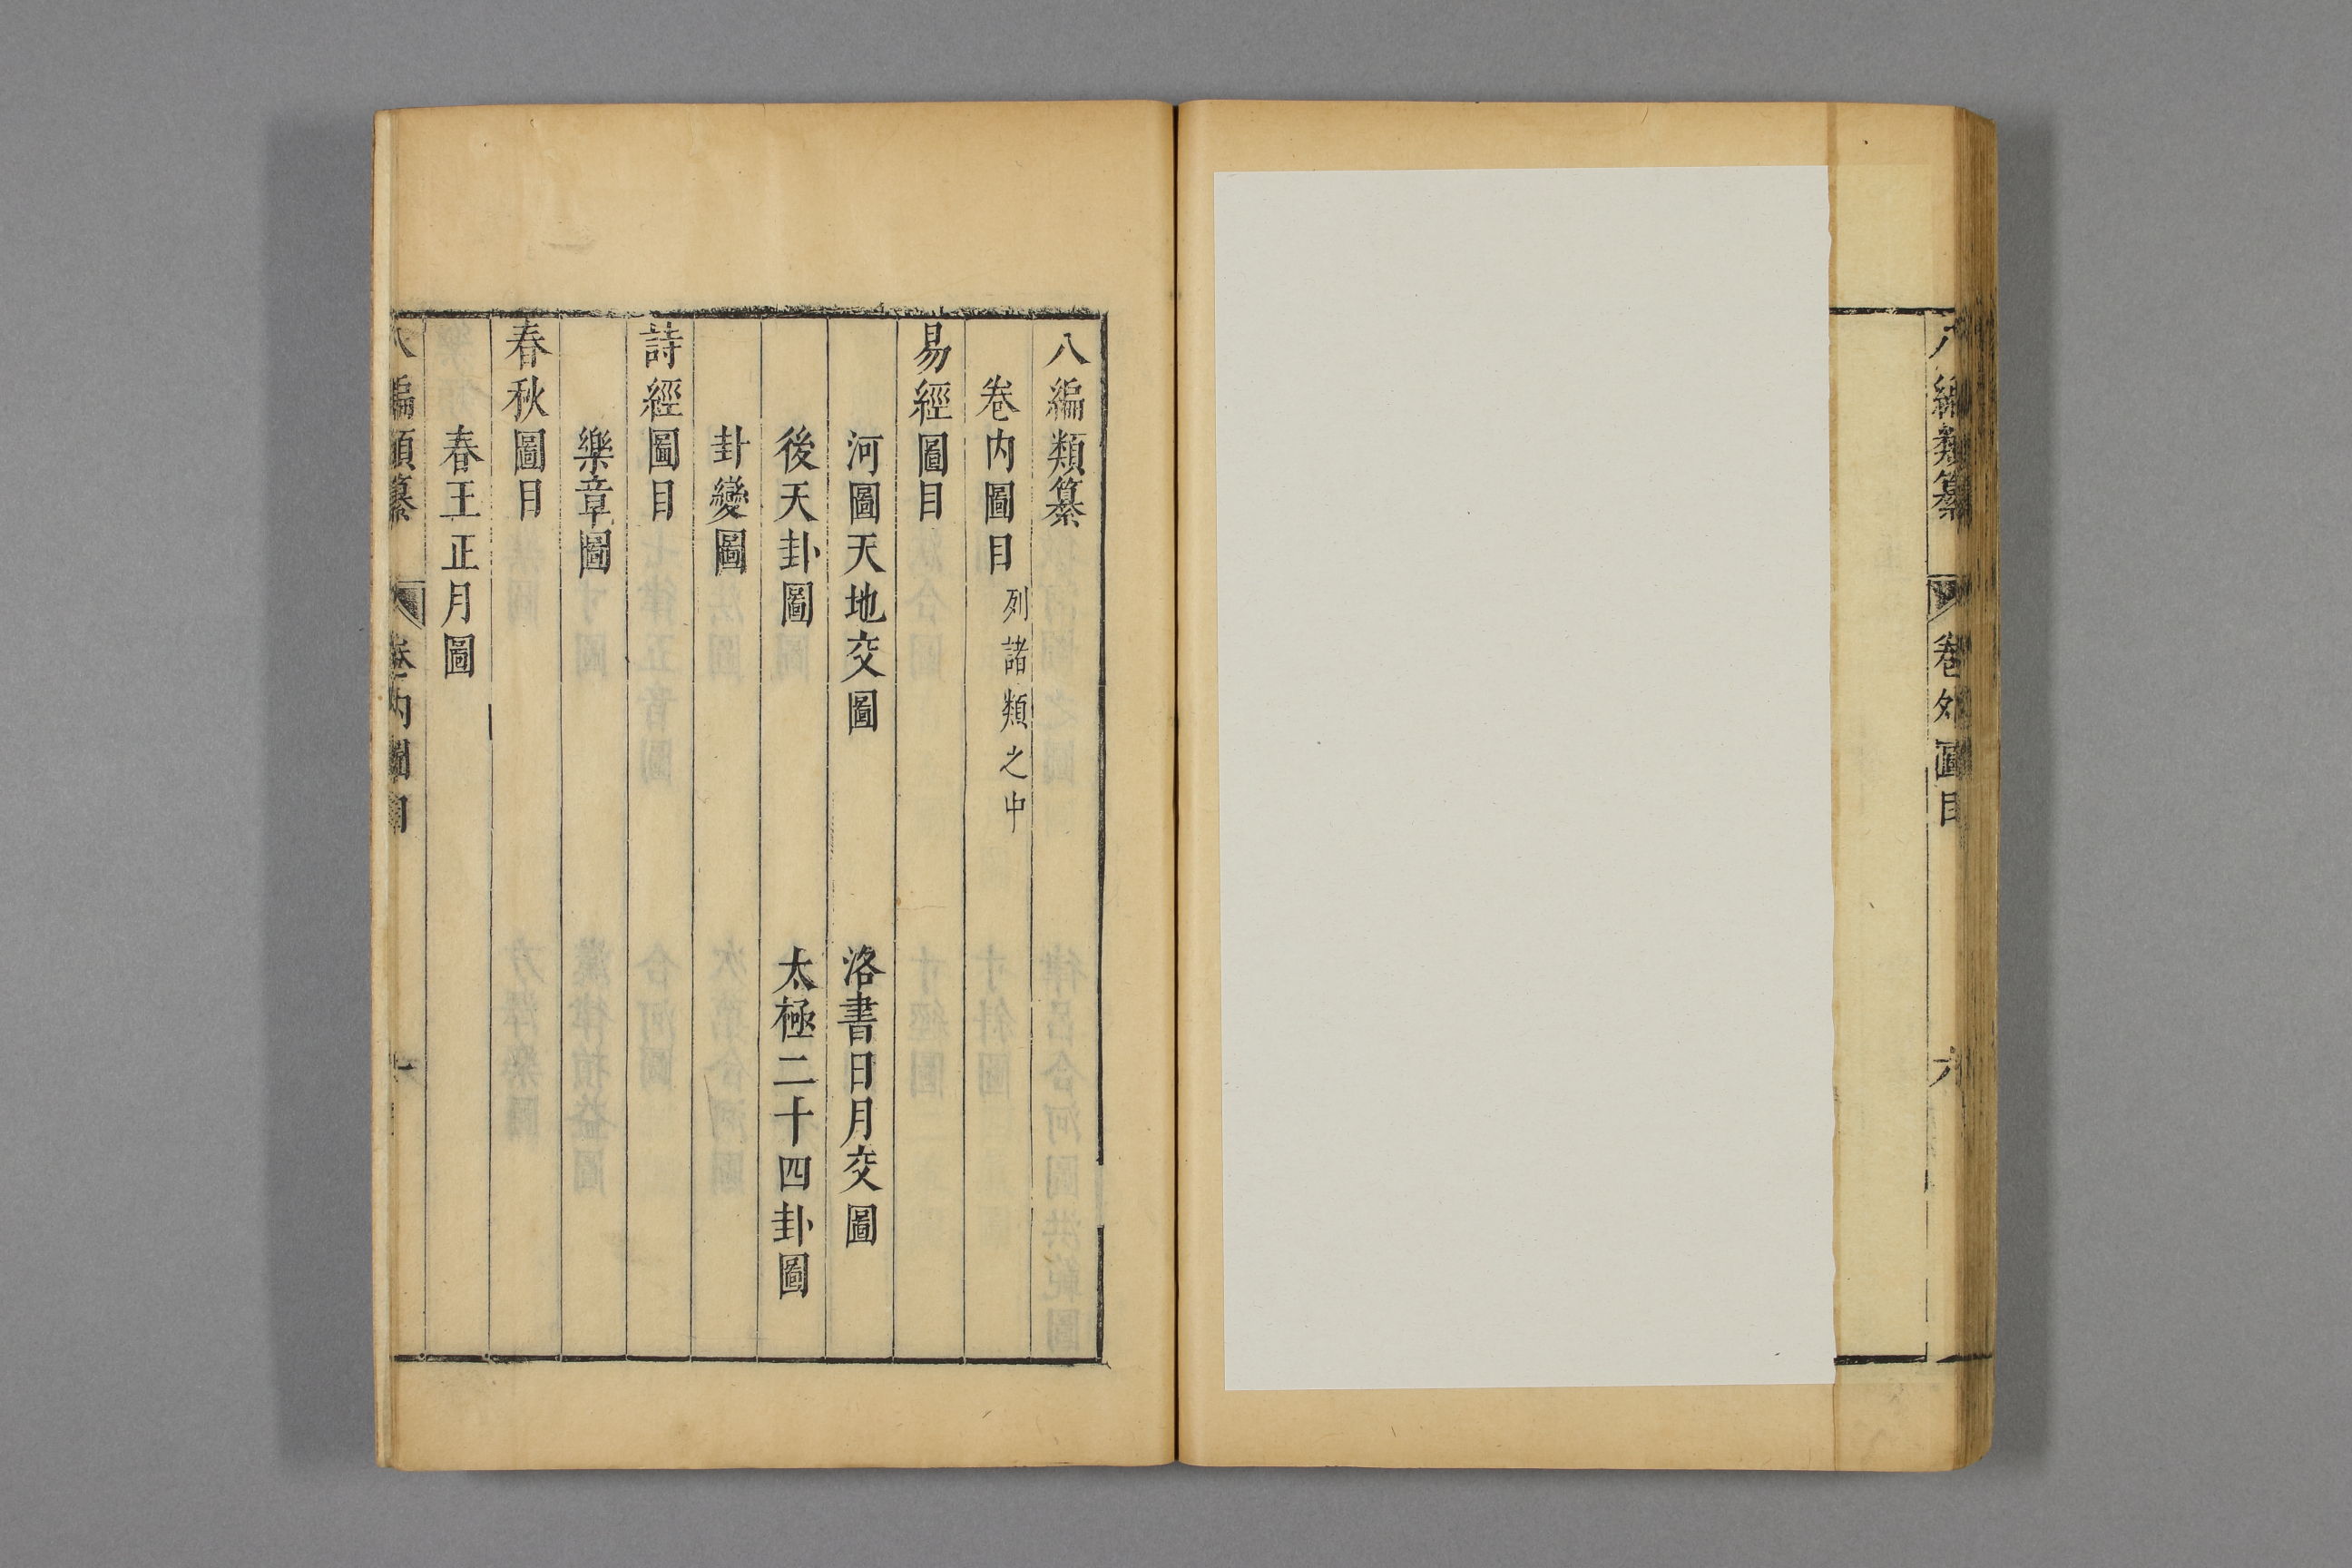 八編類纂
卷外圖目
六
八編類纂
卷内圖目 列諸類之中
易經圖目
河圖天地交圖 洛書日月交圖
後天卦圖 太極二十四卦圖
卦變圖
詩經圖目
樂章圖
春秋圖目
春王正月圖
八編類纂
卷内圖目